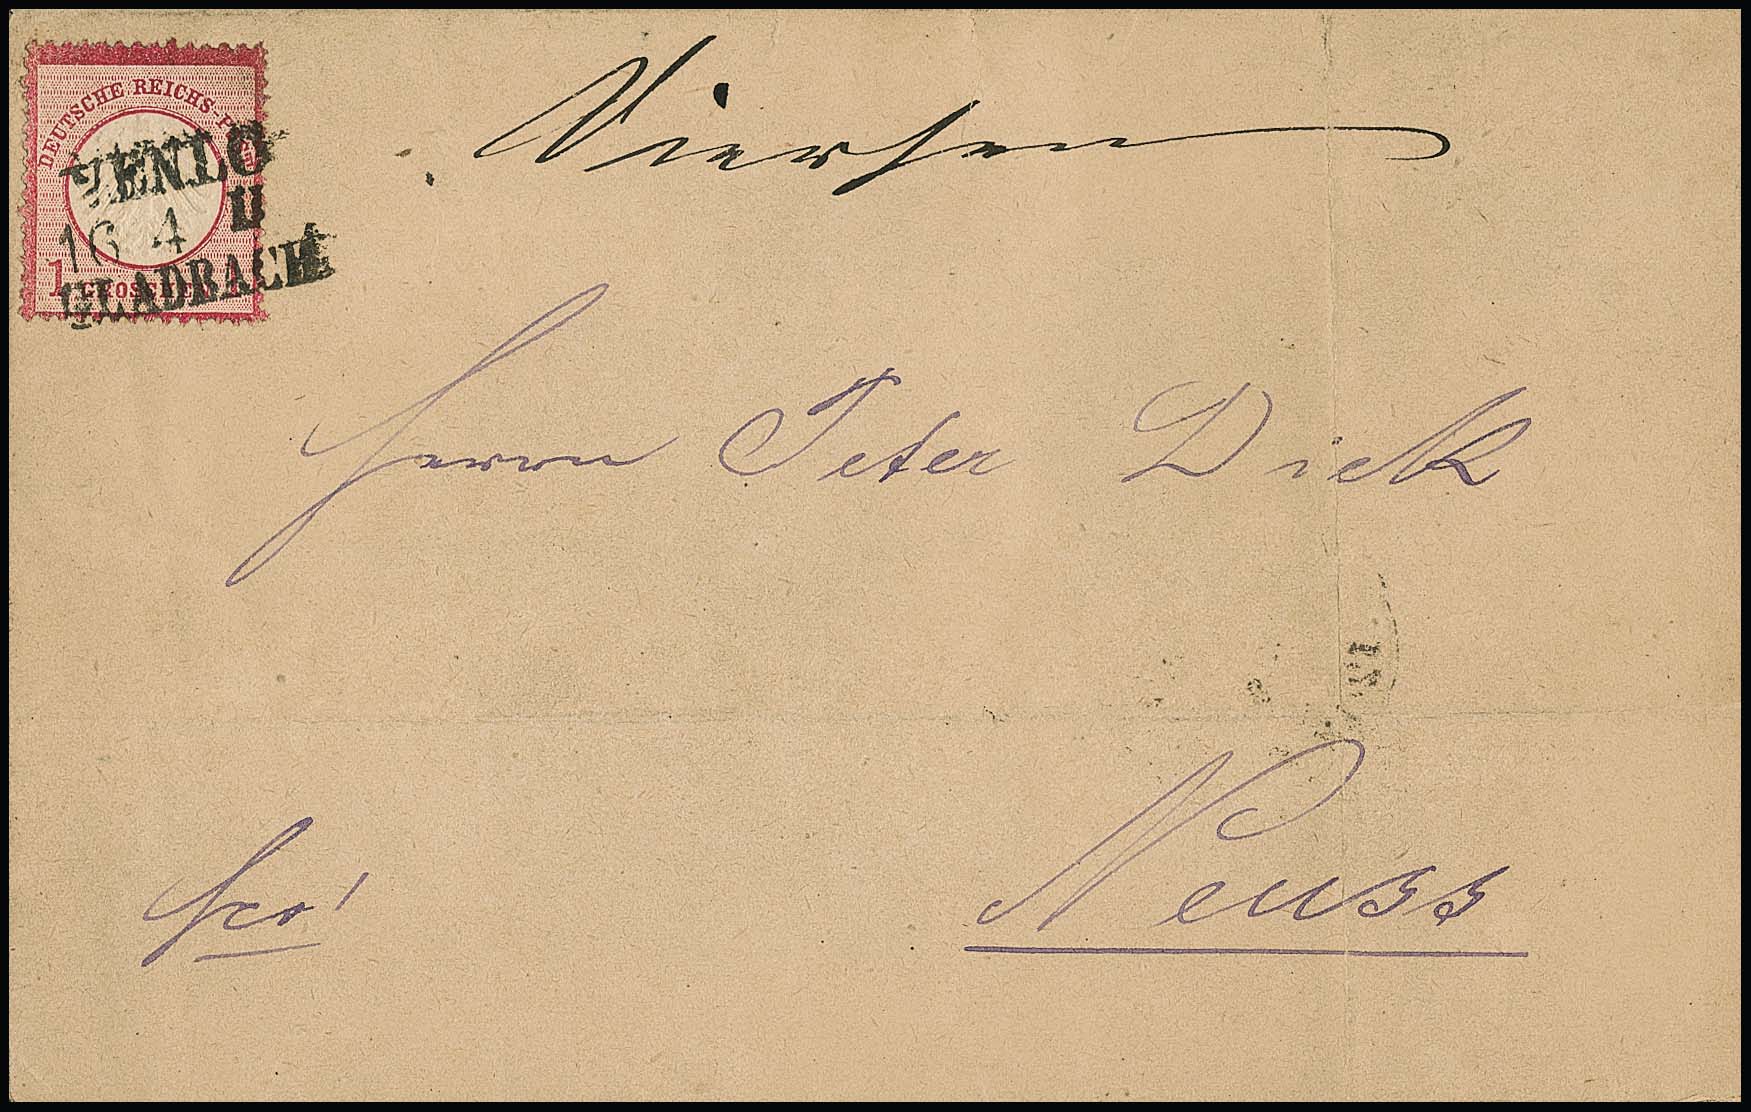 DEUTSCHE REICHS-POST
VENLO
16 4 II
1 GROSCHEN 1
GLADBACH
Viersen
Herrn Peter Dick
Neuss
fco